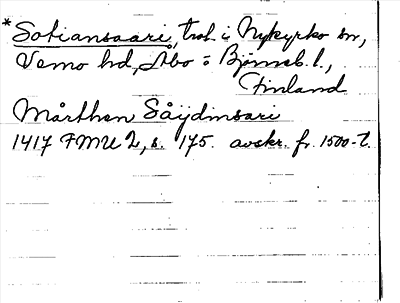 *Sotiansaari, trol. i Nykyrko sn,
Vemo hd, Åbo o Björneb. l.,
Finland
Mårthen Såijdinsari
1417 FMU 2, s. 175. avskr. fr. 1500-t.